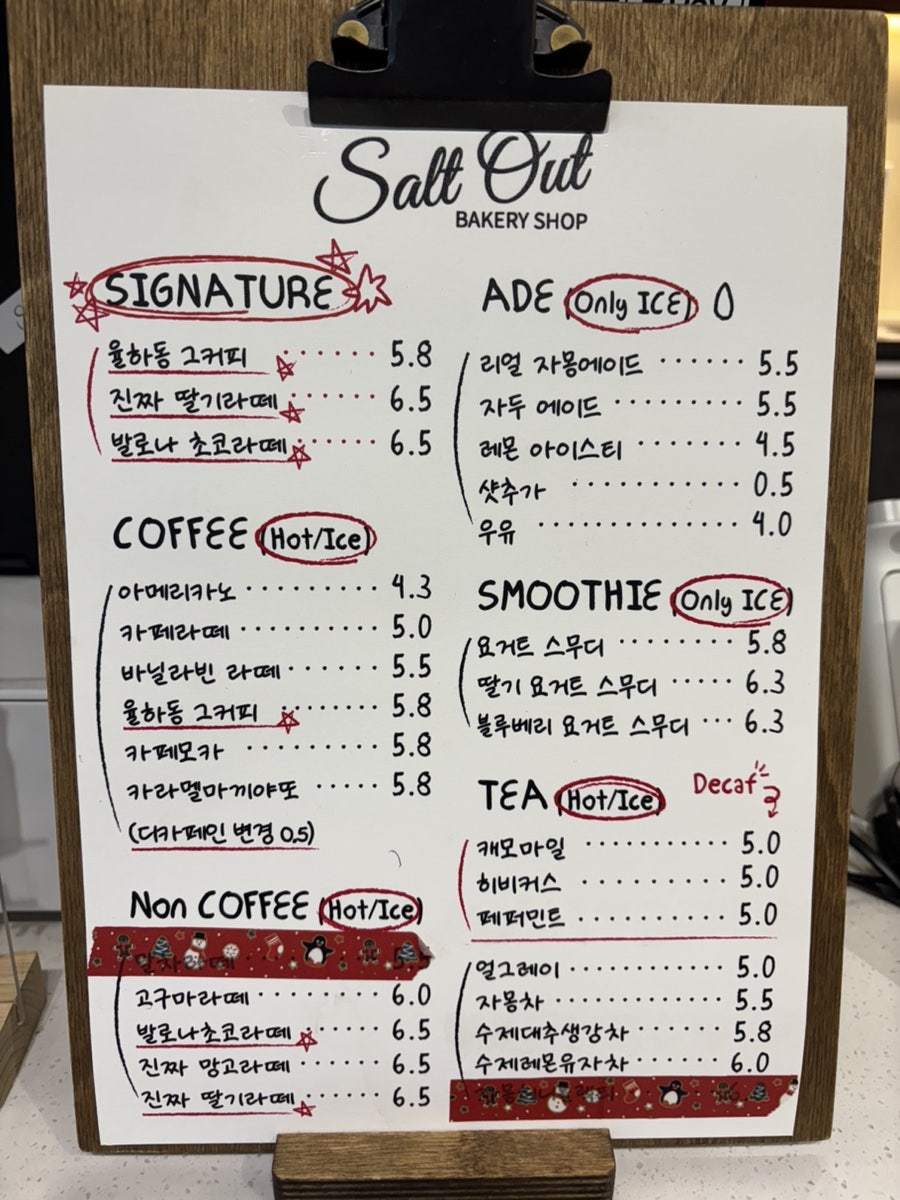 Salt Out
BAKERY SHOP
SIGNATURE
율하동 그커피 ······ 5.8
진짜 딸기라떼 ······ 6.5
발로나 초코라떼 ······ 6.5
COFFEE (Hot/Ice)
아메리카노 ········· 4.3
카페라떼 ·········· 5.0
바닐라빈 라떼 ······ 5.5
율하동 그커피 ······ 5.8
카페모카 ········· 5.8
카라멜마끼야또 ····· 5.8
(디카페인 변경 0.5)
Non COFFEE (Hot/Ice)
고구마라떼 ········ 6.0
발로나초코라떼 ····· 6.5
진짜 망고라떼 ······ 6.5
진짜 딸기라떼 ······ 6.5
ADE (Only ICE)
리얼 자몽에이드 ······ 5.5
자두 에이드 ········· 5.5
레몬 아이스티 ······· 4.5
샷추가 ············ 0.5
우유 ·············· 4.0
SMOOTHIE (Only ICE)
요거트 스무디 ········ 5.8
딸기 요거트 스무디 ····· 6.3
블루베리 요거트 스무디 ··· 6.3
TEA (Hot/Ice) Decaf
캐모마일 ··········· 5.0
히비커스 ··········· 5.0
페퍼민트 ·········· 5.0
얼그레이 ············ 5.0
자몽차 ············· 5.5
수제대추생강차 ······· 5.8
수제레몬유자차 ······· 6.0